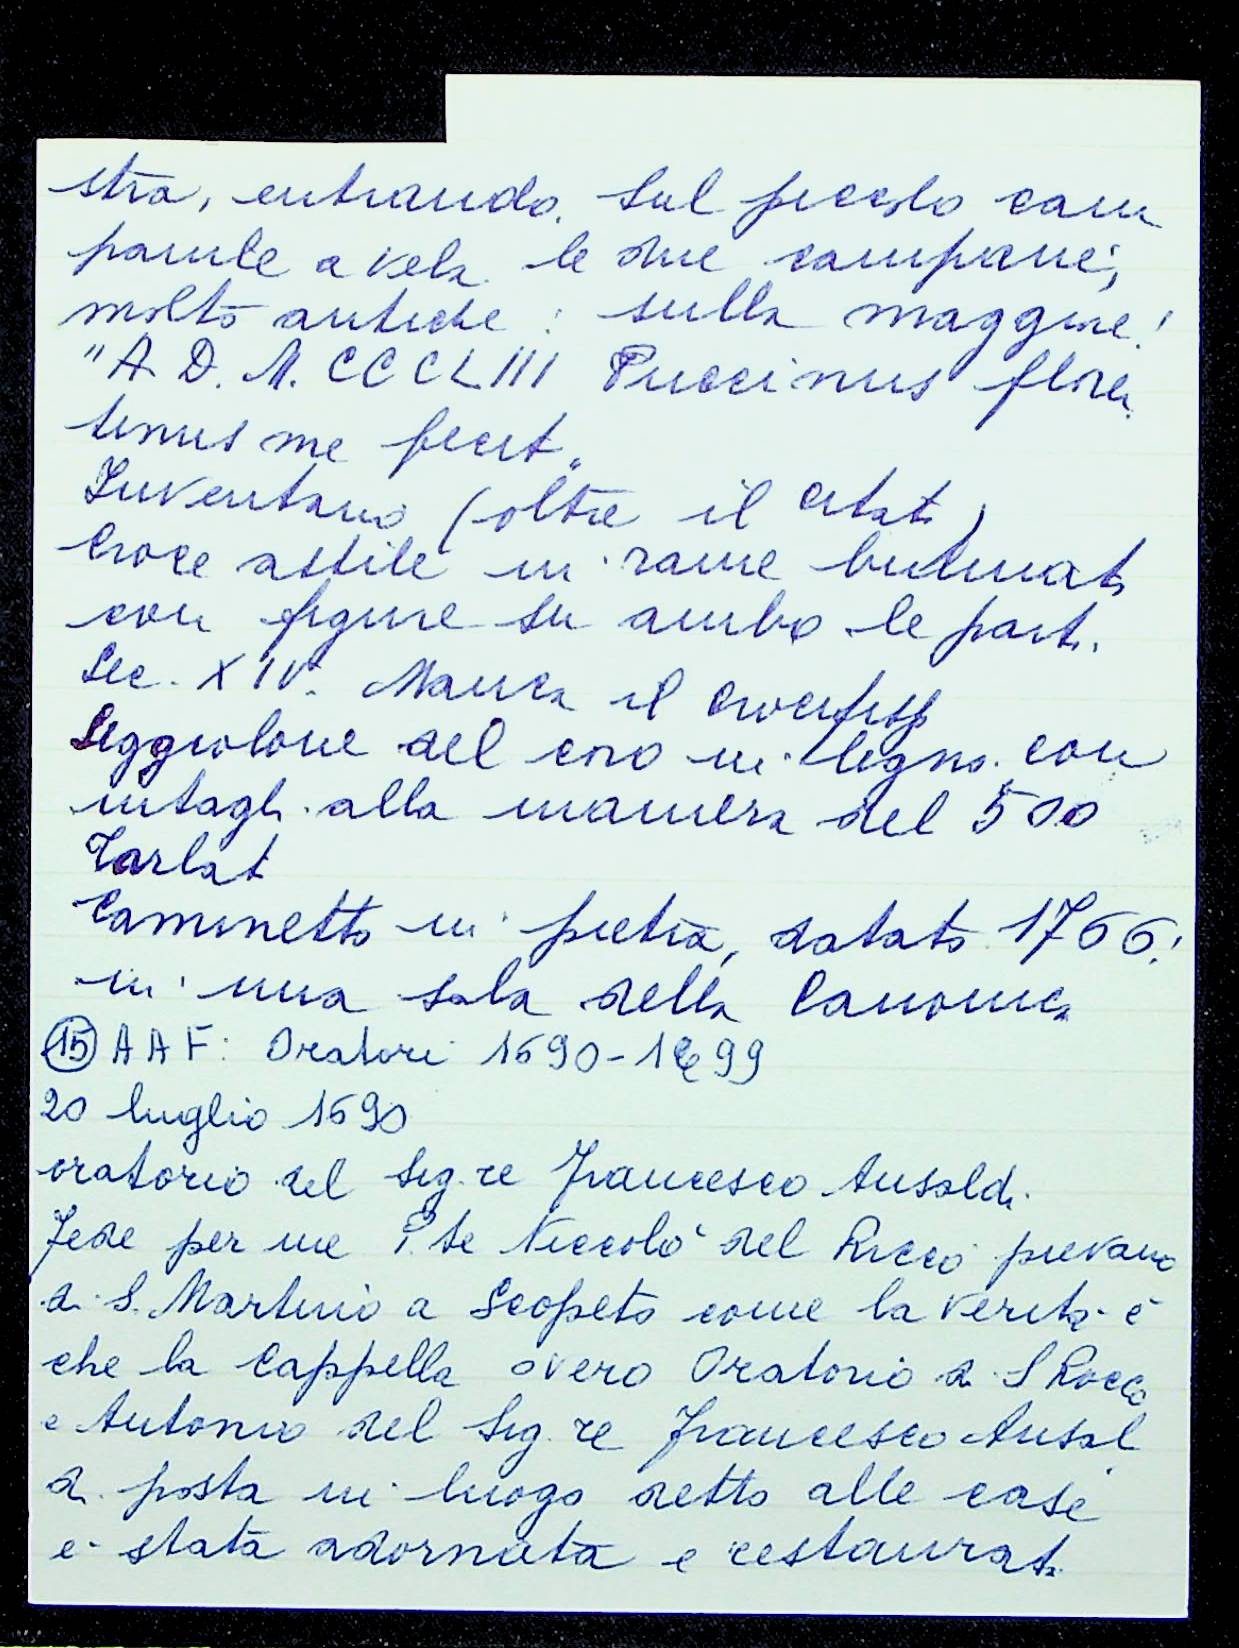 stra, entrando. Sul piccolo cam
panile a vela le due campane,
molto antiche: sulla maggiore:
"A. D. M. CCCLIII Puccinus floren
tinus me fecit"
Inventario (oltre il citato)
Croce astile in rame bulinato
con figure su ambo le parti.
Sec. XIV. Manca il crocifisso
Seggiolone del coro in legno con
intagli alla maniera del 500
Tarlato
Caminetto in pietra, datato 1766:
in una sala della Canonica
(15) AAF: Oratori 1690-1699
20 luglio 1690
oratorio del Sig.re Francesco Ansaldi.
Fede per me P.te Niccolò del Ricco pievano
di S. Martino a Scopeto come la verità è
che la Cappella overo Oratorio di S Rocco
e Antonio del Sig.re Francesco Ansal
di posta in luogo detto alle case
è stata adornata e restaurata